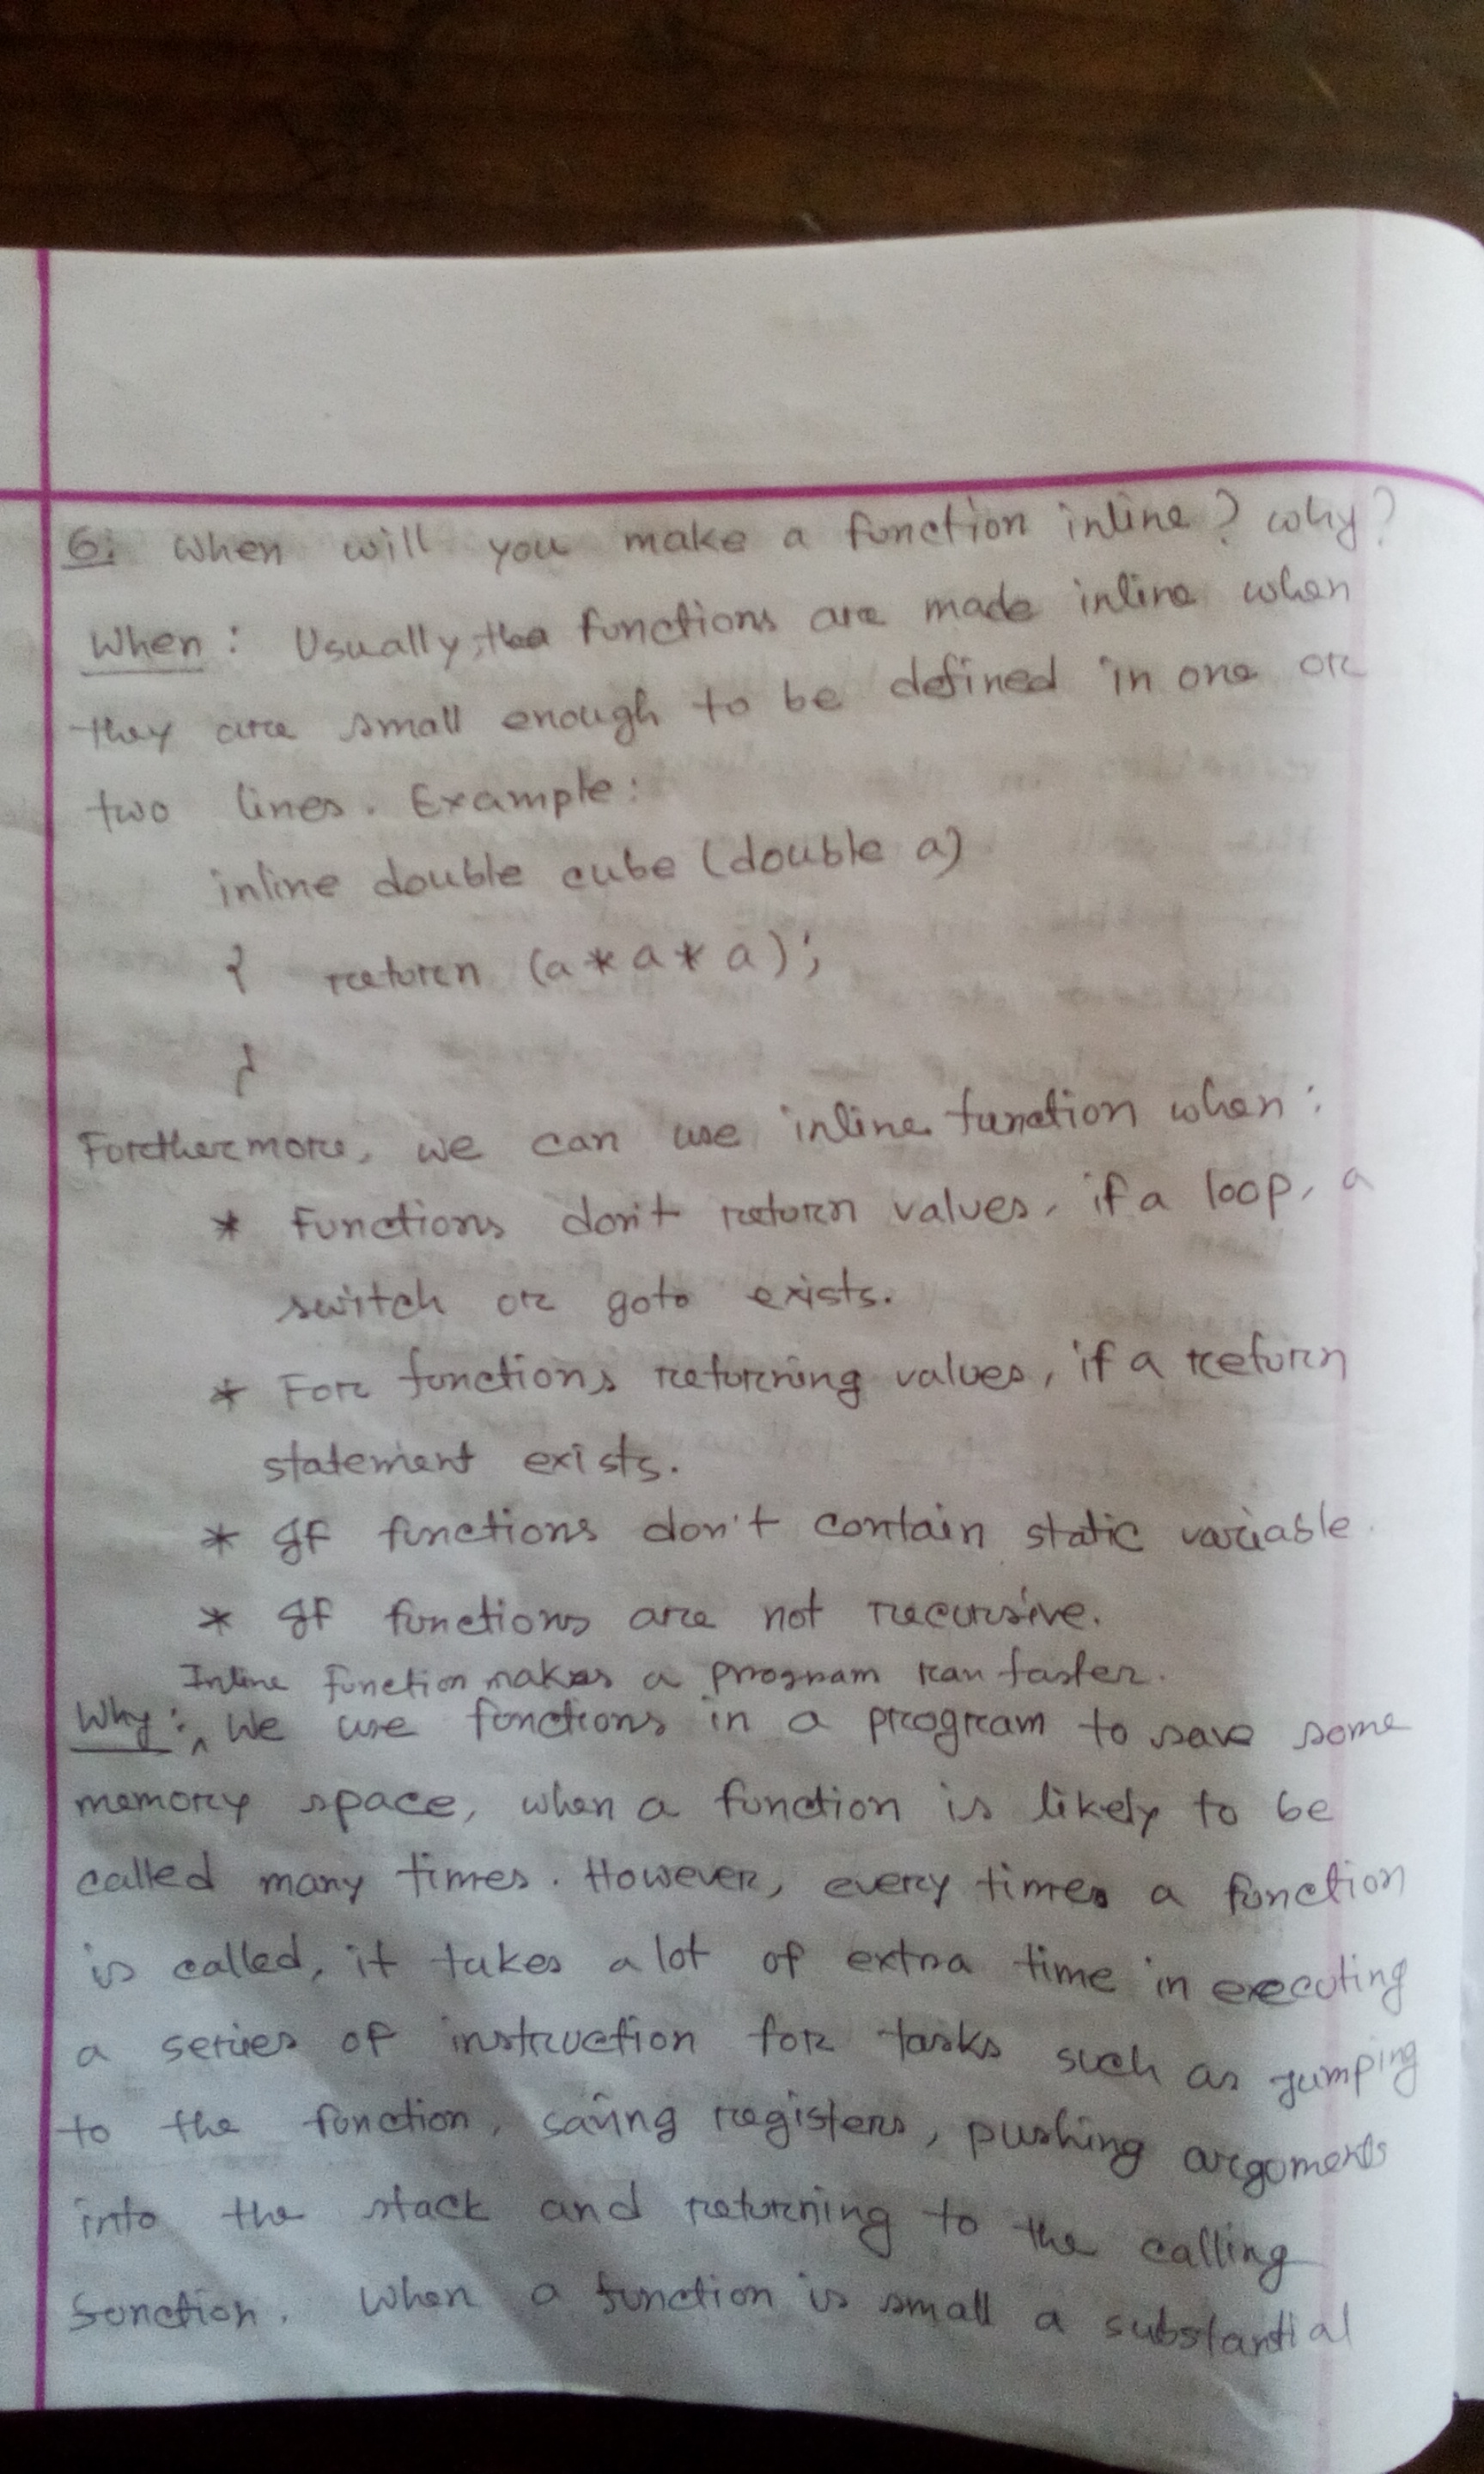 6: When will you make a function inline? why?
When: Usually, the functions are made inline when
they are small enough to be defined in one or
two lines. Example:
inline double cube (double a)
{ return (a * a * a);
}
Furthermore, we can use inline function when:
* Functions don't return values, if a loop, a
switch or goto exists.
* For functions returning values, if a return
statement exists.
* If functions don't contain static variable.
* If functions are not recursive.
Inline function makes a program run faster.
Why: ^ We use functions in a program to save some
memory space, when a function is likely to be
called many times. However, every times a function
is called, it takes a lot of extra time in executing
a series of instruction for tasks such as jumping
to the function, saving registers, pushing arguments
into the stack and returning to the calling
function. When a function is small a substantial